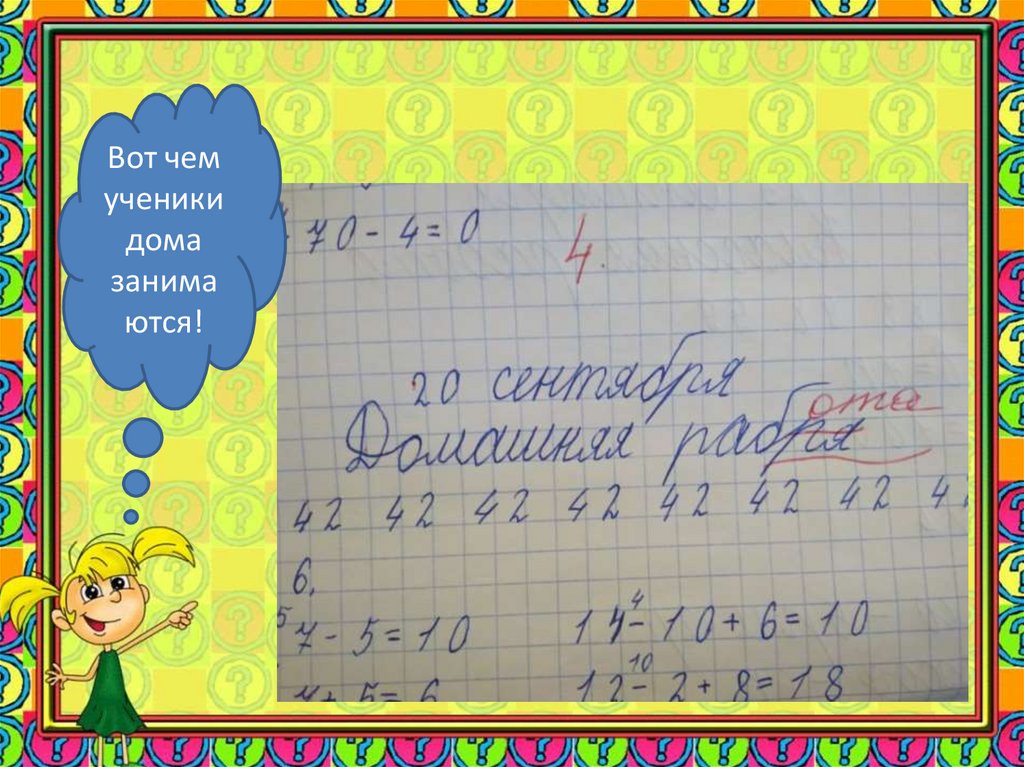 Вот чем
ученики
дома
занима
ются!
70 - 4 = 0
4.
20 сентября
ота
Домашняя рабря
42 42 42 42 42 42 42 4
6.
4
7 - 5 = 10 14 - 10 + 6 = 10
10
+ 5 = 6 12 - 2 + 8 = 18